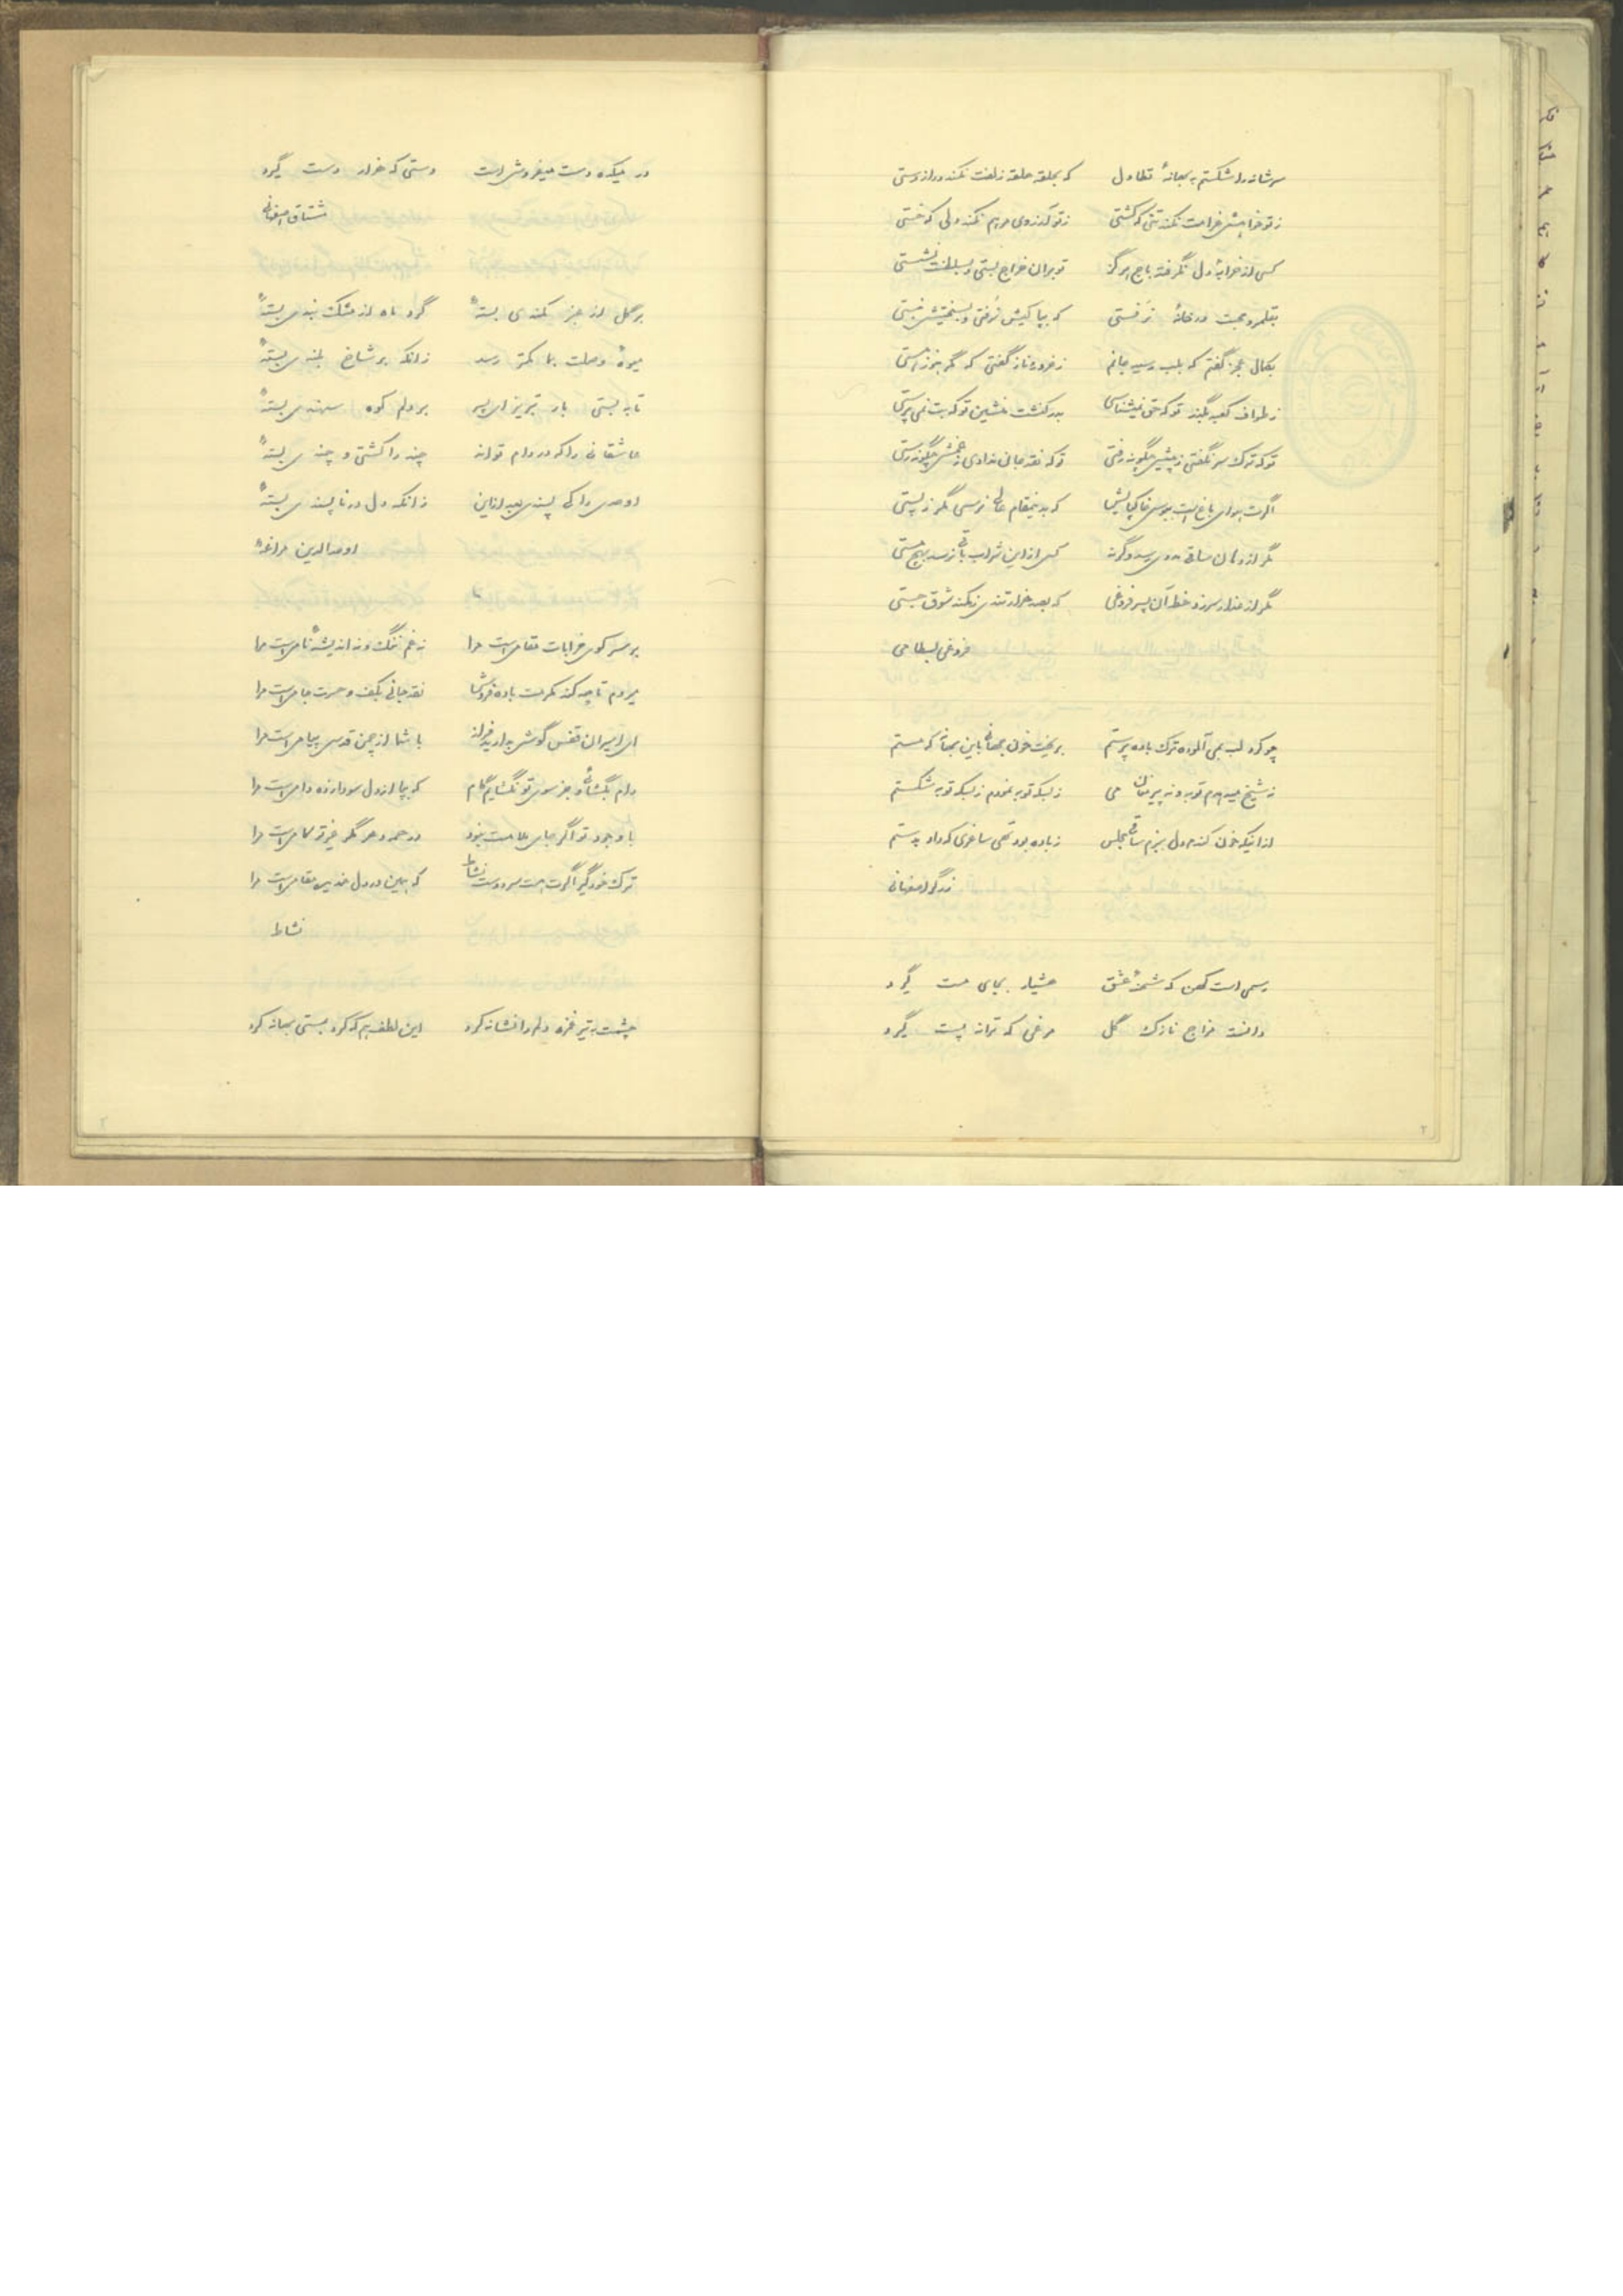 سر شانه را شکستم به بهانهٔ تطاول که بحلقه حلقه زلفت نکند درازدستی
ز تو خواهش غرامت نکند تنی که کشتی ز تو آرزوی مرهم نکند دلی که خستی
کسی از خرابهٔ دل نگرفته باج هرگز تو بر آن خراج بستی و بسلطنت نشستی
بقلمرو محبت در خانهٔ نرفتی که بپاکیش نرفتی و بسختیش نبستی
بکمال عجز گفتم که بلب رسید جانم ز غرور و ناز گفتی که مگر هنوز هستی
ز طواف کعبه بگذر تو که حق نمیشناسی بدر کنشت منشین تو که بت نمی پرستی
تو که ترک سر نگفتی ز پیش چگونه رفتی تو که نقد جان ندادی ز غمش چگونه رستی
اگرت هوای تاج است ببوس خاکپایش که بدین مقام عالی نرسی مگر ز پستی
مگر از دهان ساقی مددی رسد وگرنه کس از این شراب باقی نرسد بهیچ مستی
مگر از عذار سر زد خط آن پسر فروغی که بصد هزار تندی نکند شوق جستی
فروغی بسطامی
چو کرد لب بمی آلوده ترک باده پرستم بریخت خون بهانه باین بهانه که مستم
ز شیخ میدهدم توبه و نه پیر مغان می ز بسکه توبه نمودم ز بسکه توبه شکستم
از اینکه خون کندم دل ببزم ساقی مجلس ز باده بود تهی ساغری که داد بدستم
زرگر اصفهانی
رسمی است کهن که شحنهٔ عشق هشیار بجای مست گیرد
دانست مزاج نازک گل مرغی که ترانه پست گیرد
در میکده دست میفروش است دستی که هزار دست گیرد
مشتاق اصفهانی
بر گل از عنبر کمندی بستهٔ گرد ماه از مشک بندی بستهٔ
میوهٔ وصلت بما کمتر رسد زانکه بر شاخ بلندی بستهٔ
تا به بستی بار تبریز ای پسر بر دلم کوه سهندی بستهٔ
عاشقانی را که در دام تواند چند را کشتی و چند ی بستهٔ
اوحدی را کی پسندی بعد از این زانکه دل در ناپسندی بستهٔ
اوحدالدین مراغهٔ
بر سر کوی خرابات مقامی است مرا نه غم ننگ و نه اندیشهٔ نامی است مرا
میروم تا چه کند مکرمت باده فروش نقد جانی بکف و حسرت جامی است مرا
ای اسیران قفس گوش بدارید فراز با شما از چمن قدس پیامی است مرا
دام بگشای و بجز سوی تو نگشایم گام که بپا از دل سودازده دامی است مرا
با وجود تو اگر جای ملامت بنود در همه دهر مگر غیر تو کامی است مرا
ترک خود گیر اگرت هست سر دوست نشاط که همین در دل من مقامی است مرا
نشاط
چشمت به تیر غمزه دلم را نشانه کرد این لطف هم که کرد بمستی بهانه کرد